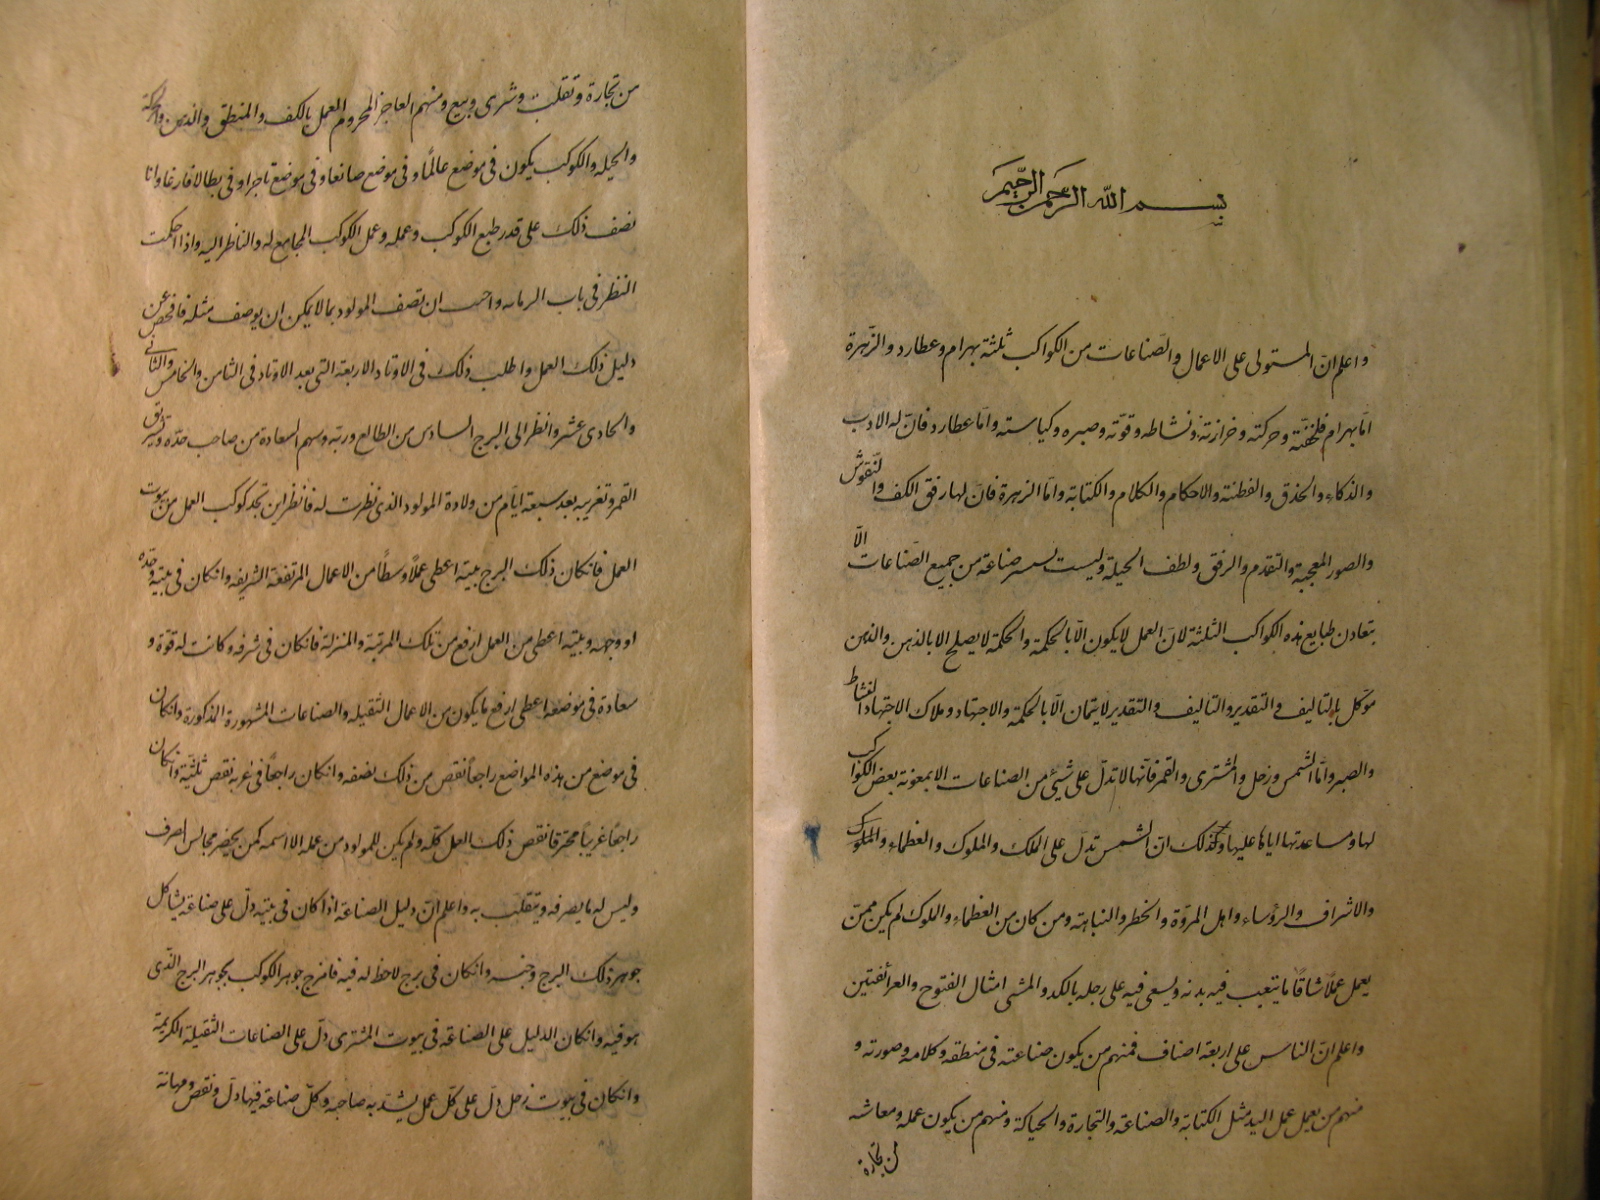 بسم الله الرحمن الرحيم
واعلم ان المستولى على الاعمال والصناعات من الكواكب ثلثة بهرام وعطارد والزهرة
اما بهرام فلخفته وحركته وحرارته ونشاطه وقوته وصبره وكياسته واما عطارد فان له الادب
والذكاء والحذق والفطنة والاحكام والكلام والكتابة واما الزهرة فان لها رفق الكف والنقوش
والصور المعجبة والتقدم والرفق ولطف الحيلة وليست صناعة من جميع الصناعات الا
بتعاون طبايع هذه الكواكب الثلثة لان العمل لا يكون الا بالحكمة والحكمة لا يصلح الا بالذهن والذهن
موكل بالتاليف والتقدير والتاليف والتقدير لا يتمان الا بالحكمة والاجتهاد وملاك الاجتهاد النشاط
والصبر واما الشمس وزحل والمشترى والقمر فانها لا تدل على شيئ من الصناعات الا بمعونة بعض الكواكب
لها ومساعدتها اياها عليها وكذلك ان الشمس تدل على الملك والملوك والعظماء والملوك
والاشراف والرؤساء واهل المروة والخطر والنباهة ومن كان من العظماء والملوك لم يكن ممن
يعمل عملا شاقا ما يتعب فيه بدنه ويسعى فيه على رجله بالكد والمشى امثال الفتوح
واعلم ان الناس على اربعة اصناف فمنهم من يكون صناعته فى منطقه وكلامه وصورته و
منهم من يعمل عمل اليد مثل الكتابة والصناعة والتجارة والحياكة ومنهم من يكون عمله ومعاشه
من تجارة
من تجارة وتقلب وشرى وبيع ومنهم العاجز المحروم العمل بالكف والمنطق والذهن والحركة
والحيله والكوكب يكون فى موضع عالما وفى موضع صانعا وفى موضع تاجرا وفى بطالا فارغا وانا
نصف ذلك على قدر طبع الكوكب وعمله وعمل الكوكب المجامع له والناظر اليه واذا احكمت
النظر فى باب ان تصف المولود بما لا يمكن ان يوصف مثله فافحص عن
دليل ذلك العمل واطلب ذلك فى الاوتاد الاربعة التى بعد الاوتاد فى الثامن والخامس والثانى
والحادى عشر وانظر الى البرج السادس من الطالع وربه وسهم السعادة من صاحب حده وتشريق
القمر وتغريبه بعد سبعة ايام من ولادة المولود الذى نظرت له فانظر اين تجد كوكب العمل من بيوت
العمل فانكان ذلك البرج بيته اعطى عملا وسطا من الاعمال المرتفعة الشريفه وانكان فى بيته وحده
او وجهه وبيته اعطى من العمل ارفع من تلك المرتبة والمنزلة فانكان فى شرفه وكانت له قوة و
سعادة فى موضعه اعطى ارفع ما يكون من الاعمال الثقيله والصناعات المشهورة المذكورة وانكان
فى موضع من هذه المواضع راجعا نقص من ذلك نصفه وانكان راجعا فى غربه نقص ثلثيه وانكان
راجعا غريبا محترقا نقص ذلك العمل كله ولم يكن للمولود من عمله الا اسمه كمن يحضر مجالس
وليس له ما يصرفه ويتقلب به واعلم ان دليل الصناعة اذا كان فى بيته دل على صناعة يشاكل
جوهر ذلك البرج وجنسه وانكان فى برج لا حظ له فيه فامزج جوهر الكوكب بجوهر البرج الذى
هو فيه وانكان الدليل على الصناعة فى بيوت المشترى دل على الصناعات الثقيلة الكريمة
وانكان فى بيوت زحل دل على كل عمل يشد به صاحبه وكل صناعة فيها ذل ونقص ومهانة